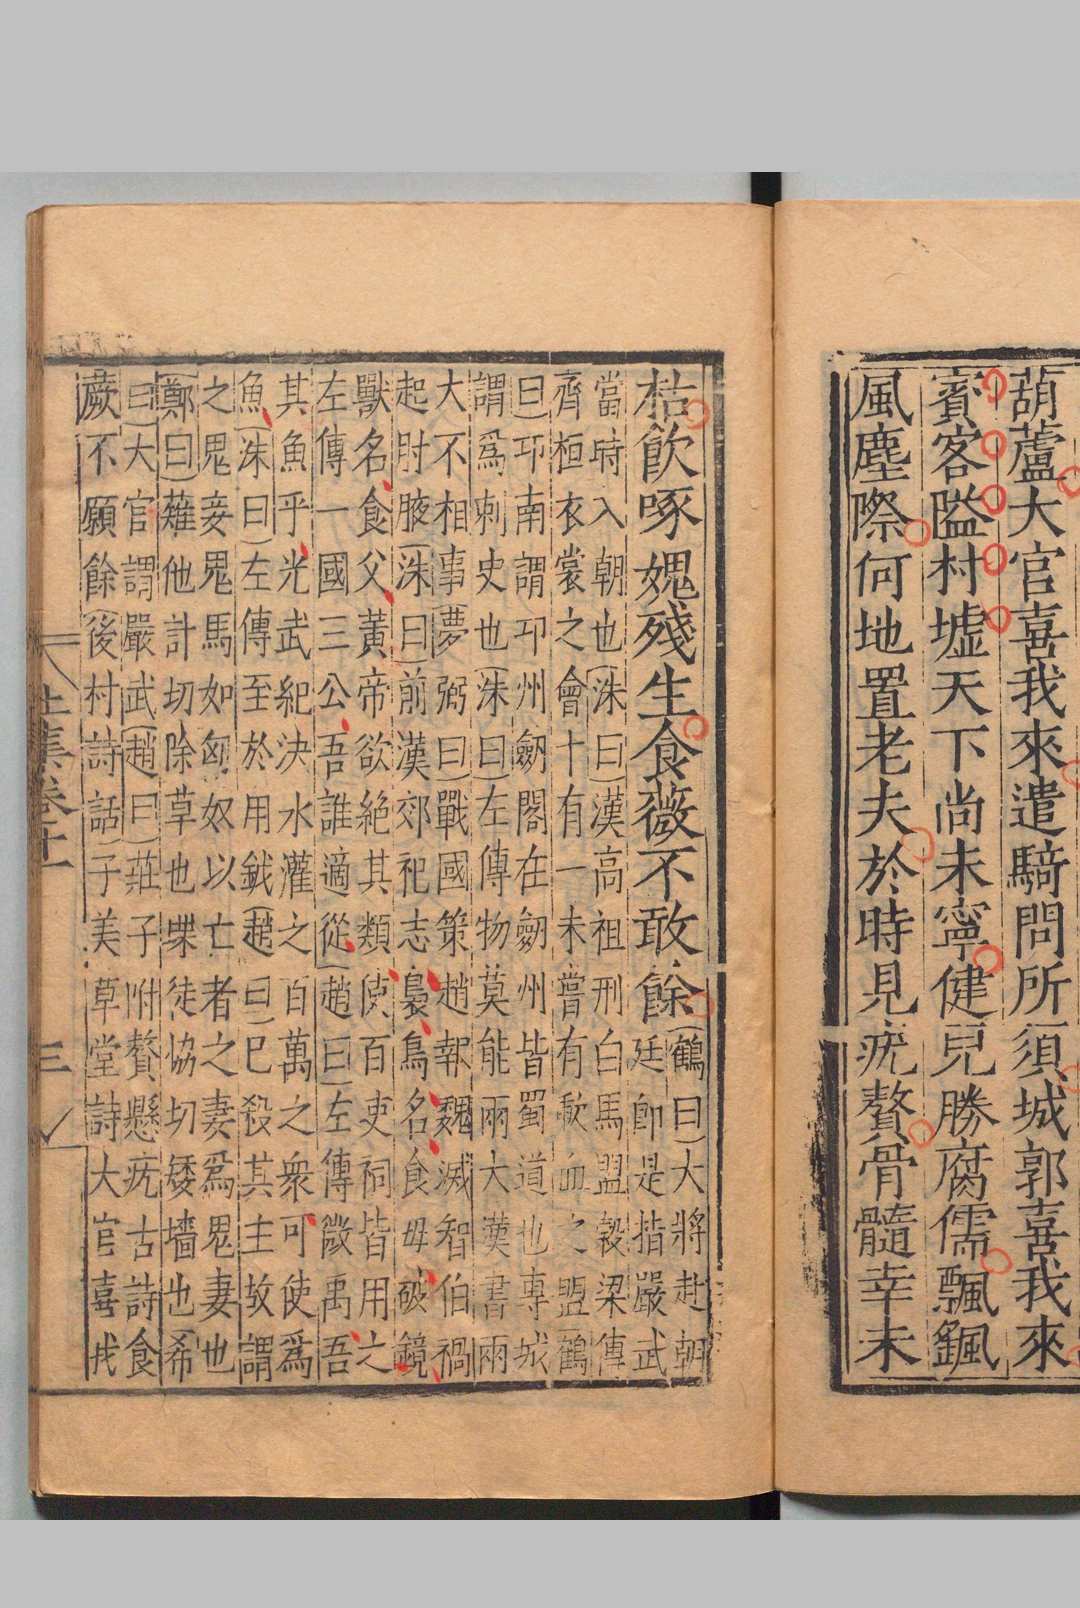 葫蘆大官喜我來遣騎問所須城郭喜我來
賓客隘村墟天下尚未寧健兒勝腐儒飄飖
風塵際何地置老夫於時見疣贅骨髓幸未
枯飲啄媿殘生食薇不敢餘(鶴曰)大將赴朝
廷即是指嚴武
當時入朝也(洙曰)漢高祖刑白馬盟穀梁傳
齊桓衣裳之會十有一未嘗有歃血之盟(鶴
曰)邛南謂邛州劒閣在劒州皆蜀道也專城
謂爲刺史也(洙曰)左傳物莫能兩大漢書兩
大不相事(夢弼曰)戰國策趙報魏滅智伯禍
起肘腋(洙曰)前漢郊祀志梟鳥名食母破鏡
獸名食父黃帝欲絶其類使百吏祠皆用之
左傳一國三公吾誰適從(趙曰)左傳微禹吾
其魚乎光武紀決水灌之百萬之衆可使爲
魚(洙曰)左傳至於用鉞(趙曰)已殺其主故謂
之鬼妾鬼馬如匈奴以亡者之妻爲鬼妻也
(鄭曰)薙他計切除草也堞徒協切矮墻也(希
曰)大官謂嚴武(趙曰)莊子附贅懸疣古詩食
蕨不願餘(後村詩話)子美草堂詩大官喜我
集卷十一
三